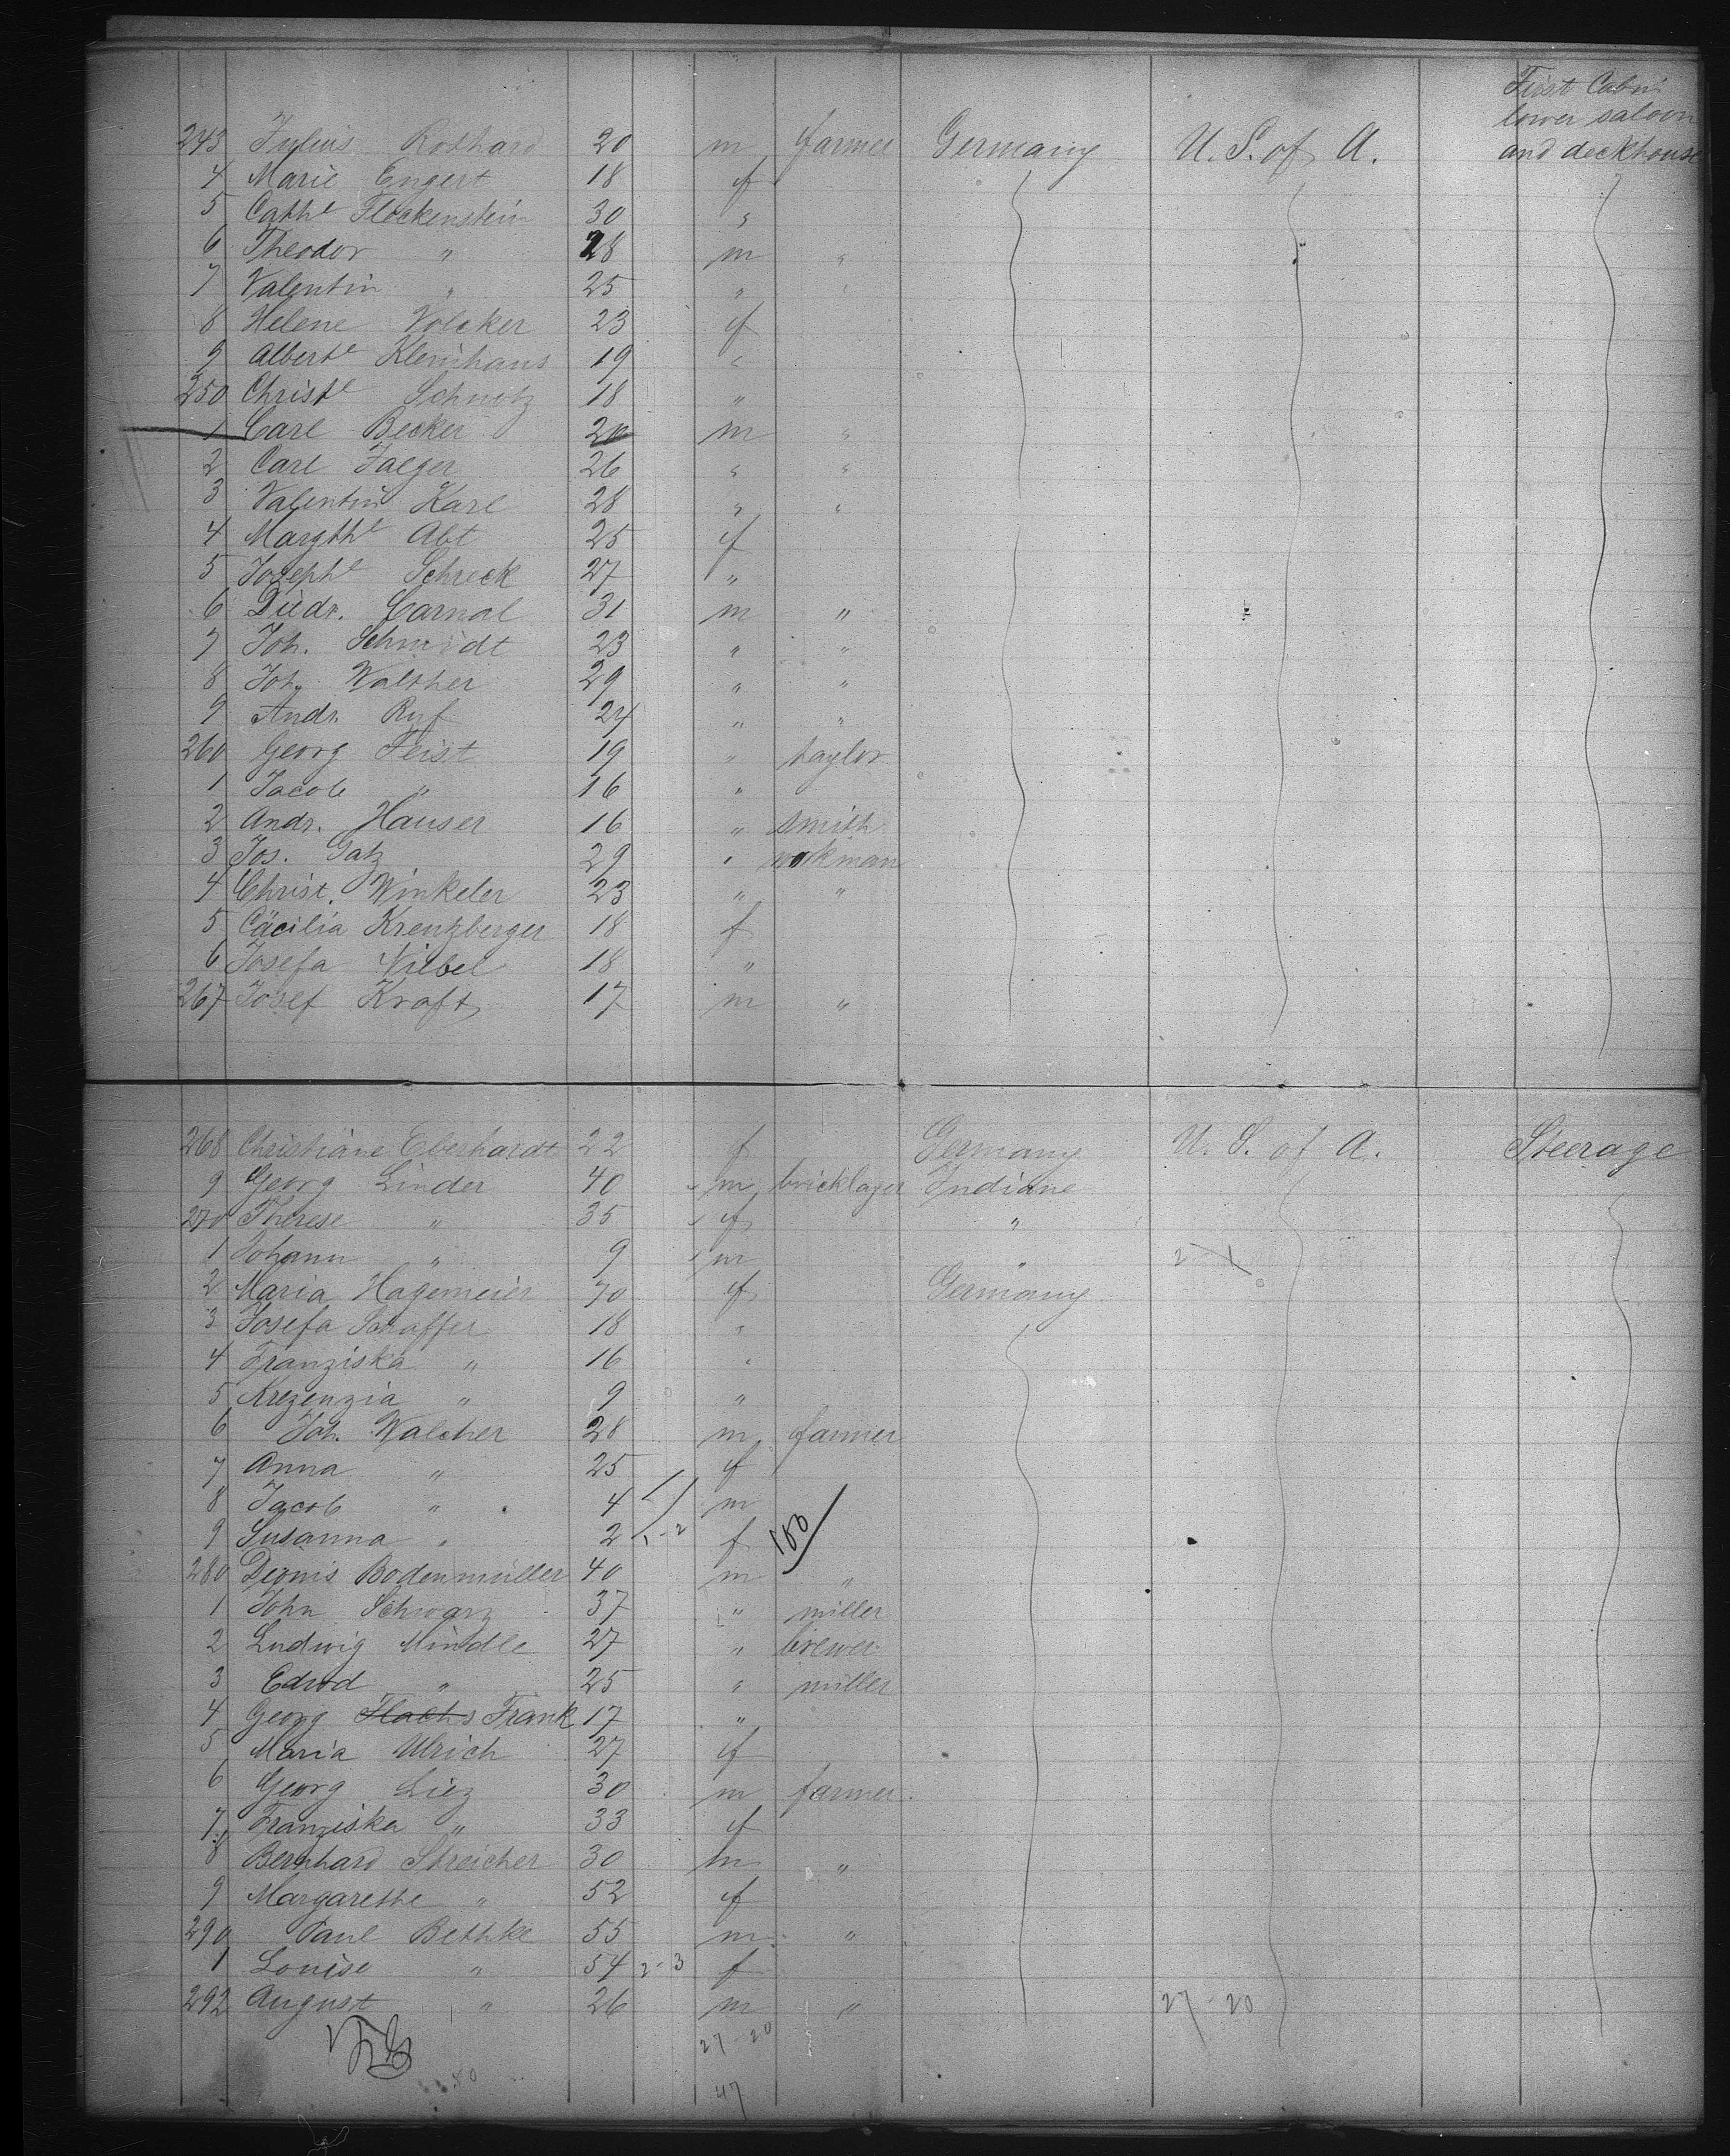 First Cabin
lower saloon
and deckhouse
243 Julius Rothard 20 m farmer Germany U. S. of A.
4 Marie Engert 18 f
5 Cathe Flockenstein 30 "
6 Theodor " 28 m "
7 Valentin " 25 " "
8 Helene Volcker 23 f
9 Alberte Kleinhans 19 "
250 Christe Schnitz 18 "
1 Carl Becker 20 m "
2 Carl Jaeger 26 " "
3 Valentin Karl 28 " "
4 Margthe Abt 25 f
5 Josephe Schreck 27 "
6 Diedr. Carnal 31 m "
7 Joh. Schmidt 23 " "
8 Joh. Walther 29 " "
9 Andr. Ruf 24 " "
260 Georg Feist 19 " taylor
1 Jacob " 16 "
2 Andr. Hauser 16 " smith
3 Jos. Gatz 29 " workman
4 Christ. Winkeler 23 " "
5 Cäcilia Kreuzberger 18 f
6 Josefa Niebel 18 "
267 Josef Kraft 17 m "
268 Christiane Eberhardt 22 f Germany U. S. of A. Steerage
9 Georg Linder 40 m bricklager Indiane
270 Therese " 35 f "
1 Johann " 9 m " 2 - 1
2 Maria Hagemeier 70 f Germany
3 Josefa Schaffer 18 "
4 Franziska " 16 "
5 Krezenzia " 9 "
6 Joh. Walcher 28 m farmer
7 Anna " 25 f
8 Jacob " 4 m
9 Susanna " 2 1-2 f
280 Dionis Bodenmüller 40 m "
1 John Schwarz 37 " miller
2 Ludwig Mindle 27 " brewer
3 Edwd " 25 " miller
4 Georg Flachs Frank 17 "
5 Maria Ulrich 27 f
6 Georg Liez 30 m farmer
7 Franziska " 33 f
8 Bernhard Streicher 30 m "
9 Margarethe " 52 f
290 Paul Bethke 55 m "
1 Louise " 54 2-3 f
292 August " 26 m " 27-20
27-20
50
47